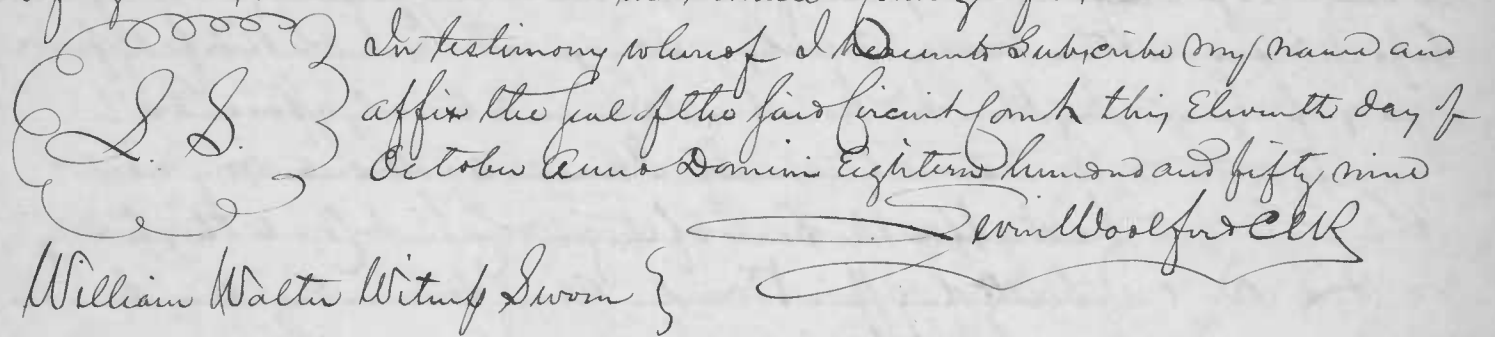 L. S.
In testimony whereof I hereunto Subscribe my name and
affix the seal of the said Circuit Court this Eleventh day of
October Anno Domini Eighteen hundred and fifty nine
Levin Woolford Clk
William Walter Witness Sworn }